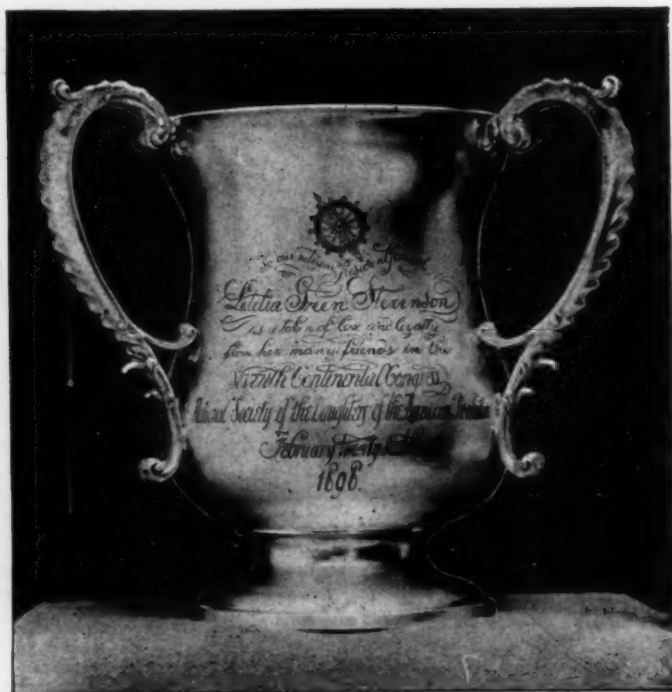 To our
President General
Letitia Green Stevenson
as a token of love and loyalty
from her many friends in the
Seventh Continental Congress
National Society of the Daughters of the American Revolution
February twenty
1898.